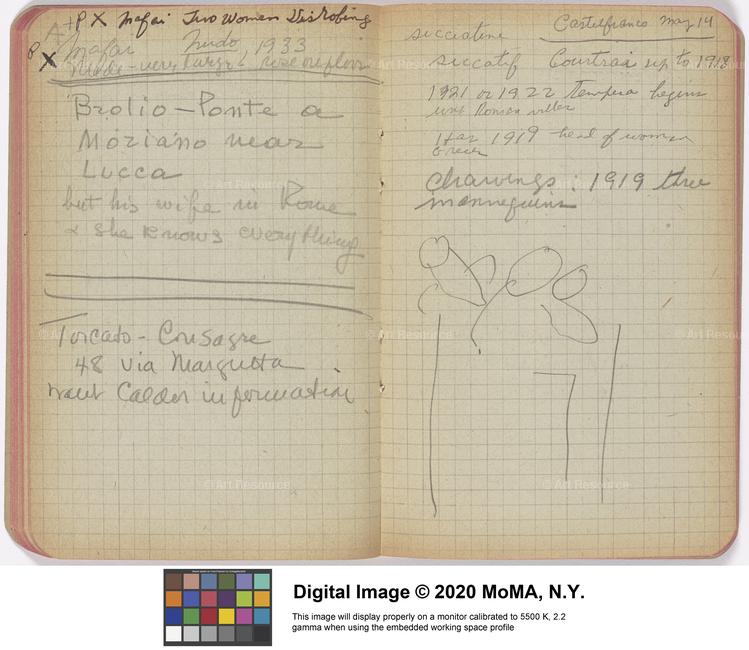 A+P X Mafai Two Women Disrobing
P X Mafai Nudo, 1933
Nude - very large, rose
Brolio - Ponte a
Moriano near
Lucca
but his wife in Rome
& she knows everything
Torcato - Consagra
48 via Margutta
want Calder information
Castelfranco May 14
siccatine
siccatif Courtrai up to 1918
1921 or 1922 tempera begins
with Roman villas
1919 head of woman
drawings: 1919 three
mannequins
© Art Resource
Digital Image © 2020 MoMA, N.Y.
This image will display properly on a monitor calibrated to 5500 K, 2.2
gamma when using the embedded working space profile